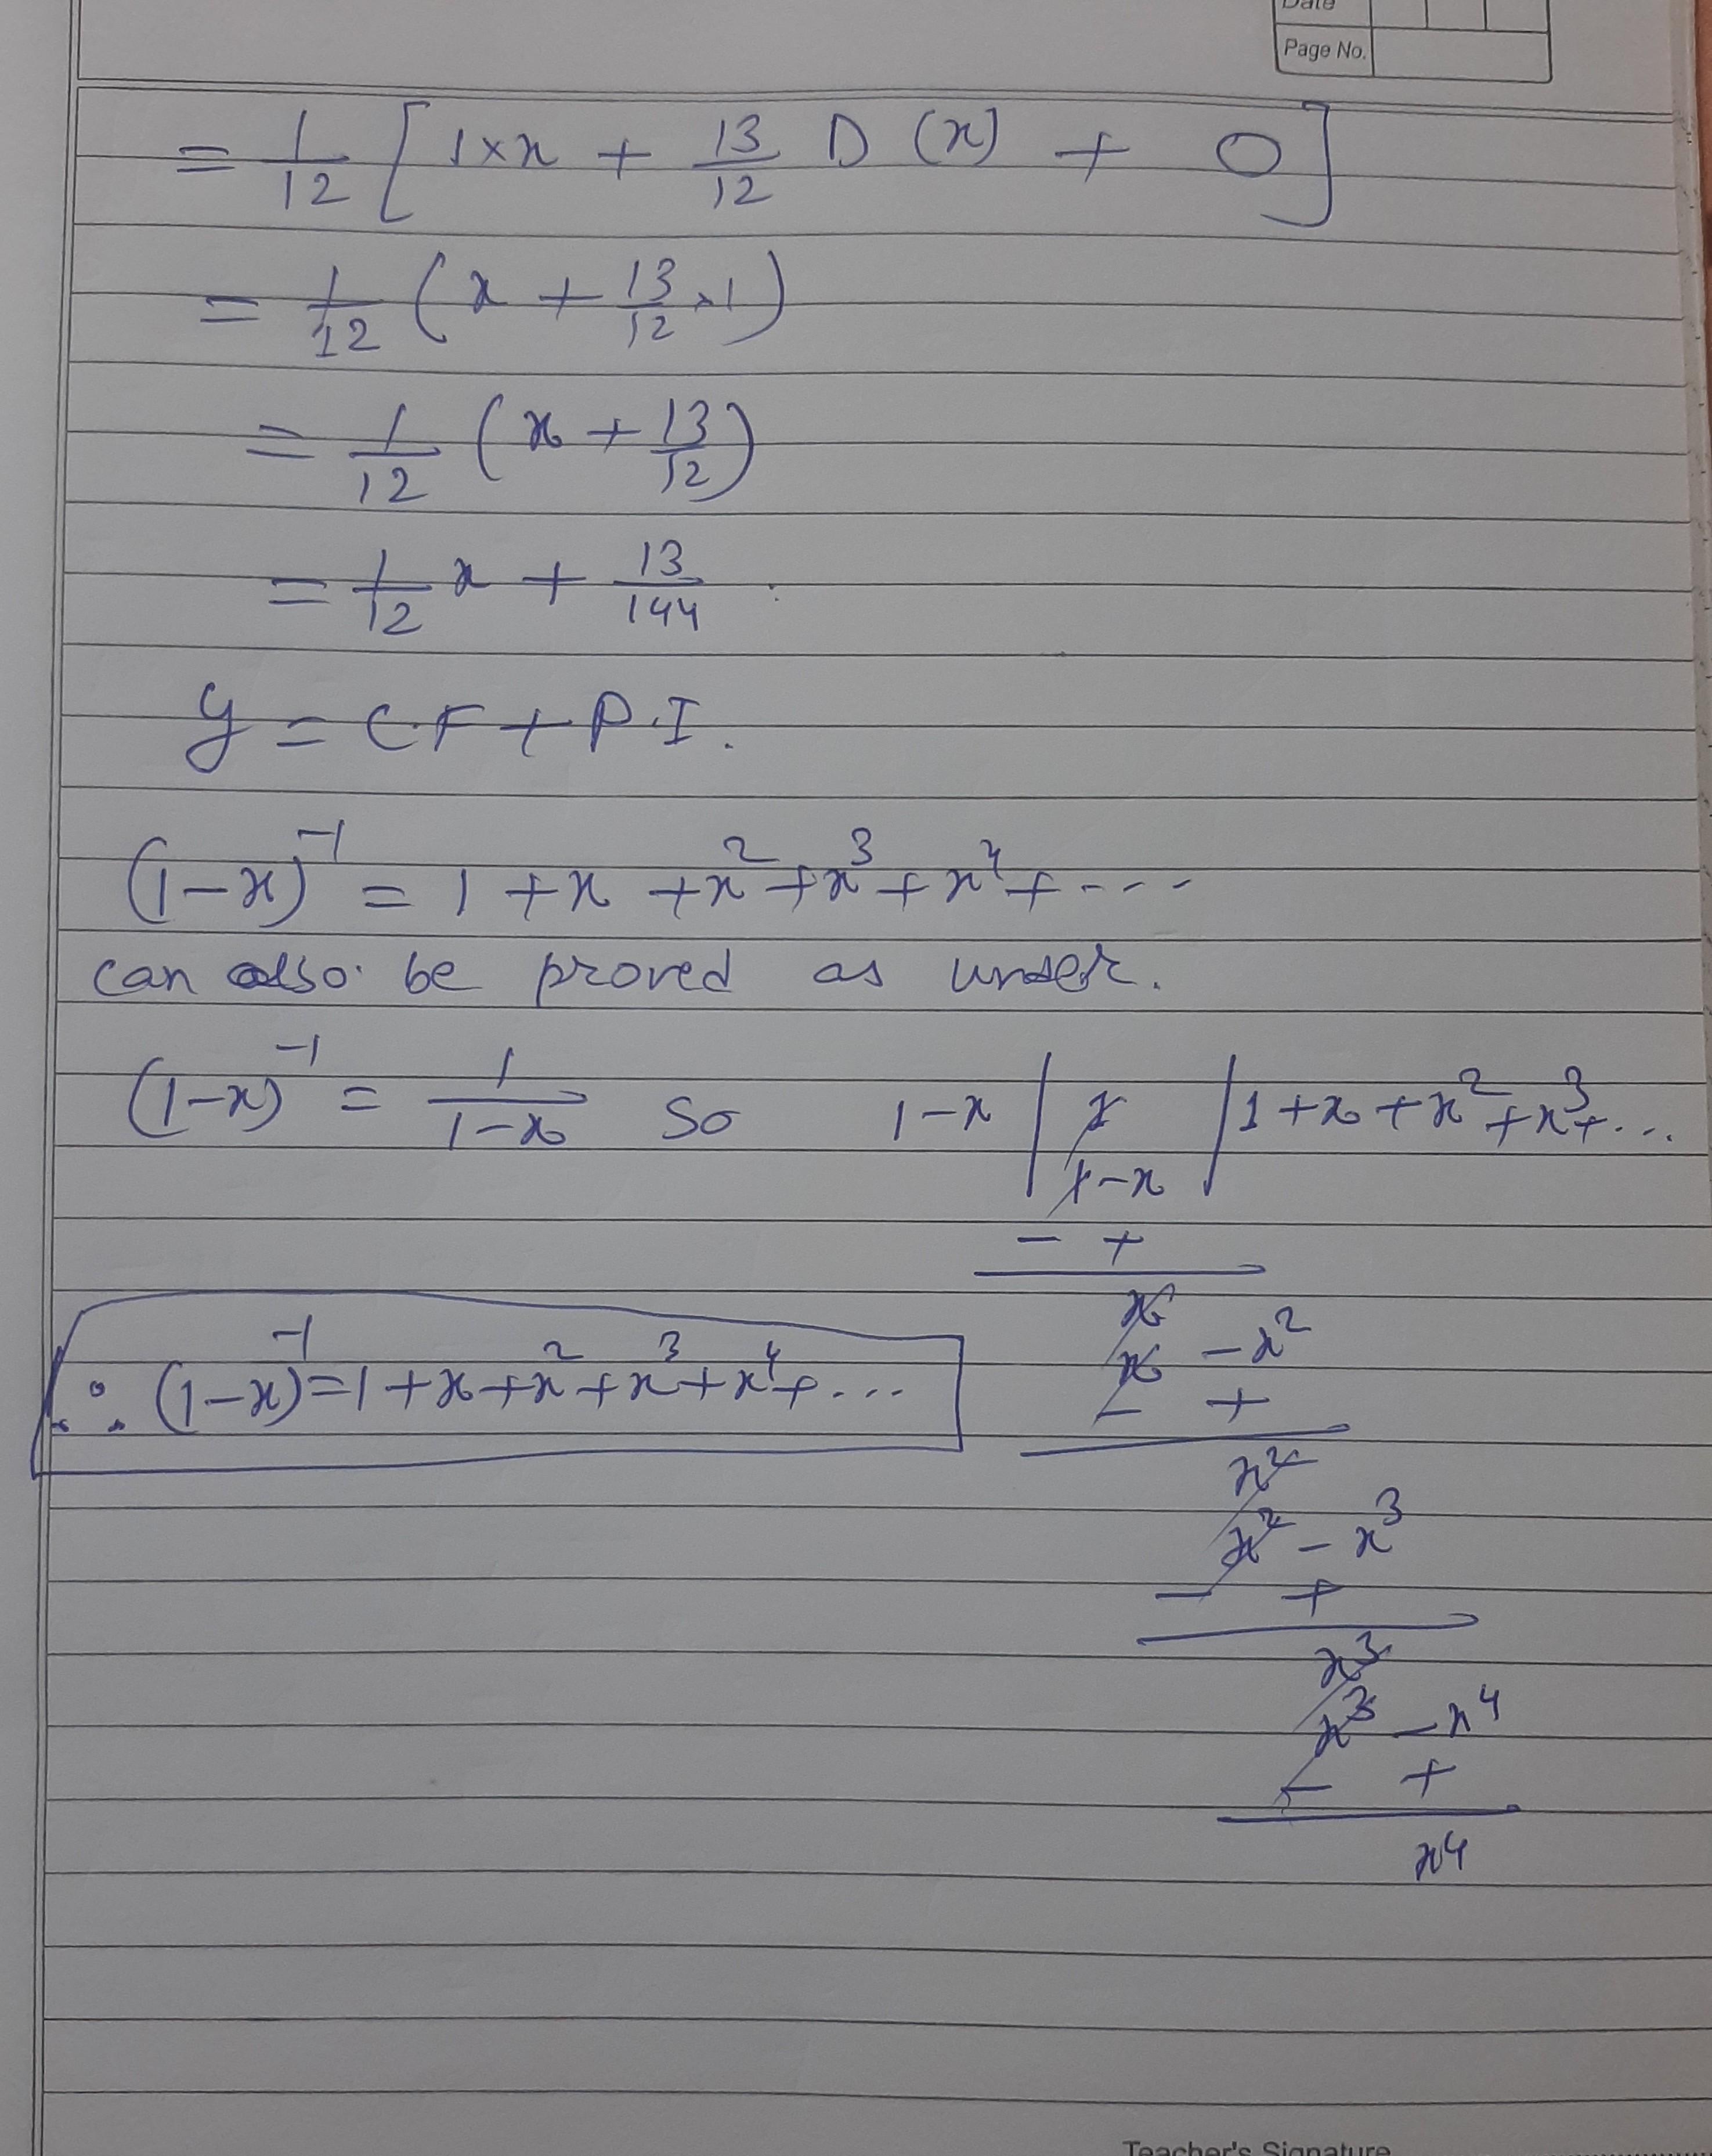 Date
Page No.
= 1/12 [1×x + 13/12 D (x) + 0]
= 1/12 (x + 13/12 ×1)
= 1/12 (x + 13/12)
= 1/12 x + 13/144
y = C.F + P.I.
(1-x)⁻¹ = 1 + x + x² + x³ + x⁴ + ---
can also be proved as under.
(1-x)⁻¹ = 1/(1-x) so 1-x | 1 | 1 + x + x² + x³ + ...
1-x
- +
x
x - x²
- +
∴ (1-x)⁻¹ = 1 + x + x² + x³ + x⁴ + ...
x²
x² - x³
- +
x³
x³ - x⁴
- +
x⁴
Teacher's Signature